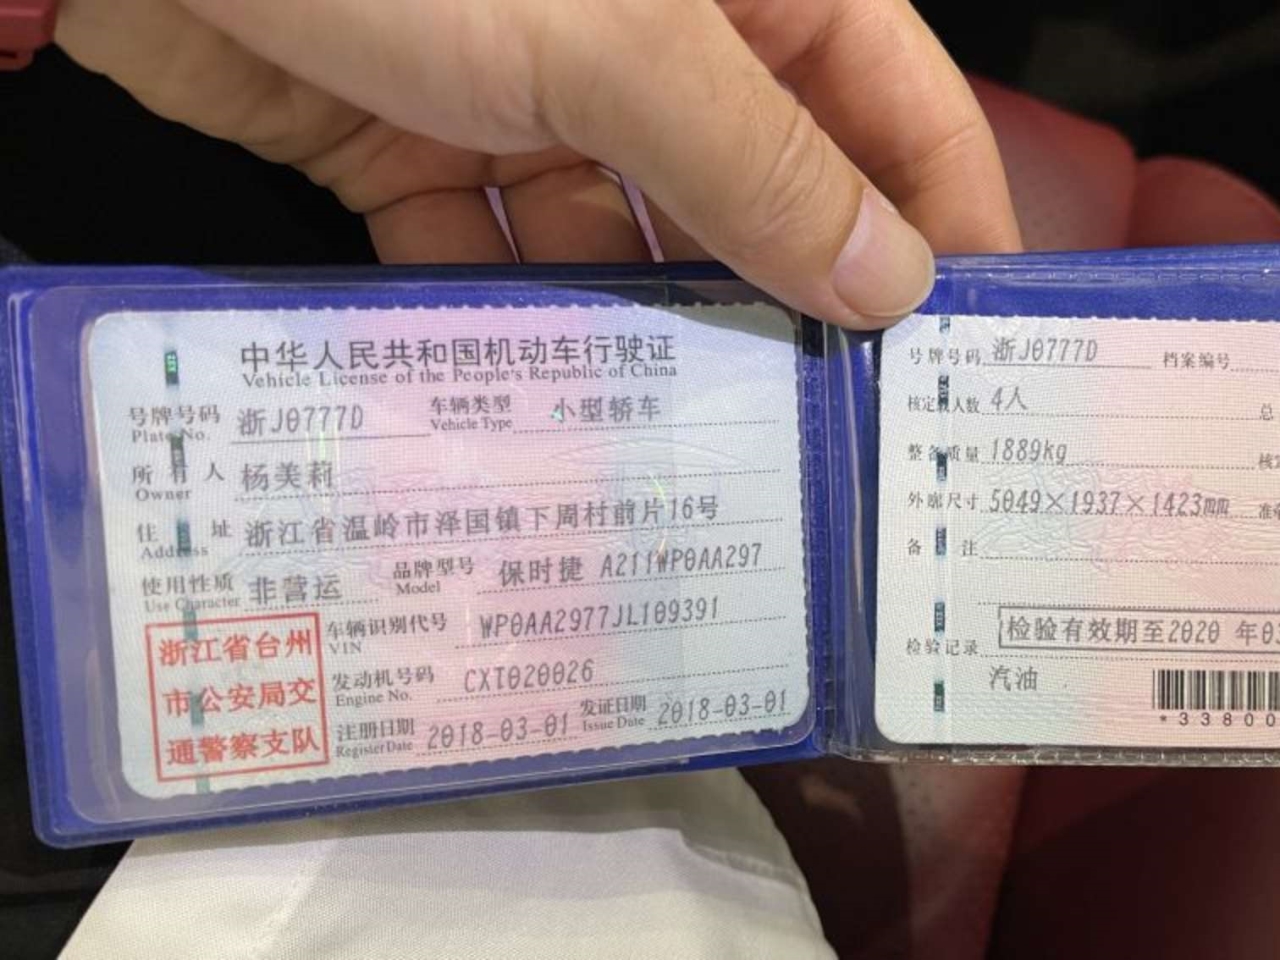 中华人民共和国机动车行驶证
Vehicle License of the People's Republic of China
号牌号码 浙J0777D 车辆类型 小型轿车
Plate No. Vehicle Type
所有人 杨美莉
Owner
住址 浙江省温岭市泽国镇下周村前片16号
Address
使用性质 非营运 品牌型号 保时捷 A211WP0AA297
Use Character Model
浙江省台州
市公安局交
通警察支队
车辆识别代号 WP0AA2977JL109391
VIN
发动机号码 CXT020026
Engine No.
注册日期 2018-03-01 发证日期 2018-03-01
Register Date Issue Date
号牌号码 浙J0777D 档案编号
核定载人数 4人 总
整备质量 1889kg 核定
外廓尺寸 5049×1937×1423mm 准
备注
检验记录 检验有效期至2020 年0
汽油
*33800